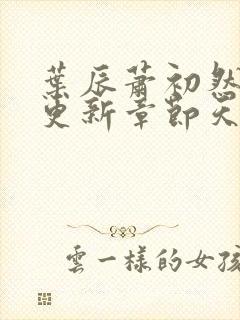 葉辰蕭初然
更新章節天
雲一樣的女孩